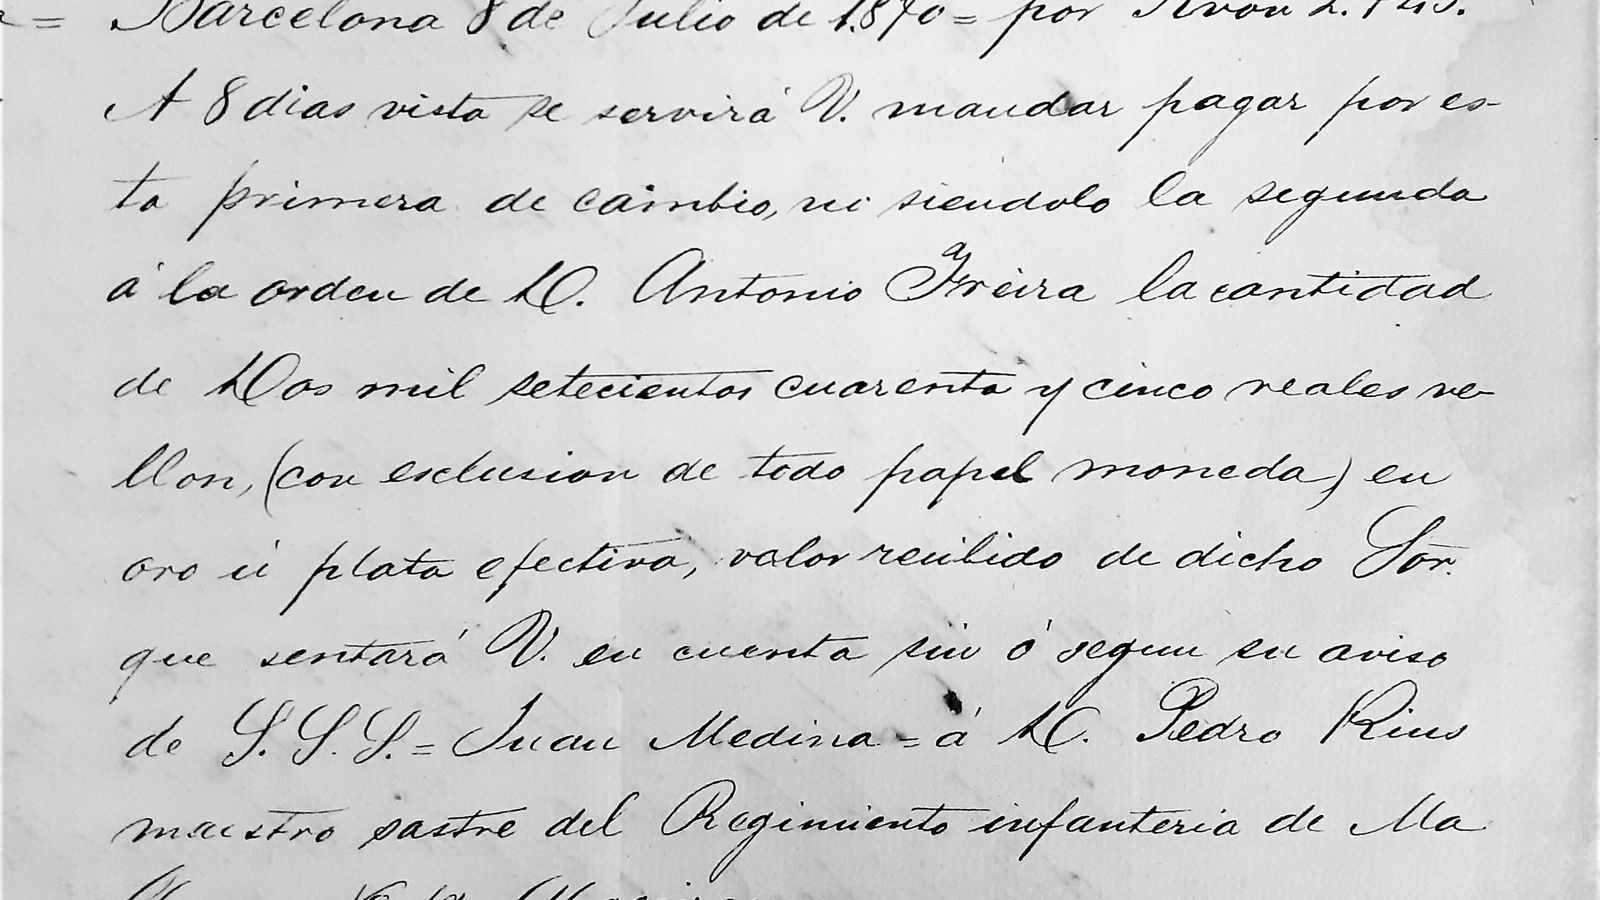 = Barcelona 8 de Julio de 1.870 = por Rvon 2.745.
A 8 dias vista se servirá V. mandar pagar por es-
ta primera de cambio, no siendolo la segunda
á la orden de D. Antonio Freira la cantidad
de Dos mil setecientos cuarenta y cinco reales ve-
llon, (con esclusion de todo papel moneda) en
oro ú plata efectiva, valor recibido de dicho Sor.
que sentará V. en cuenta sin ó segun su aviso
de S. S. S. = Juan Medina = á D. Pedro Rius
maestro sastre del Regimiento infanteria de Ma